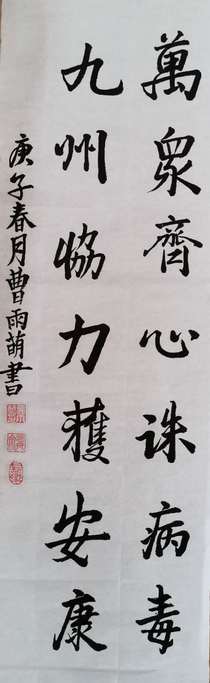 萬眾齊心誅病毒
九州協力獲安康
庚子春月曹雨萌書